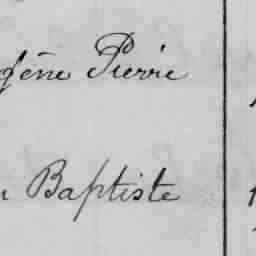 gène Pierre
n Baptiste